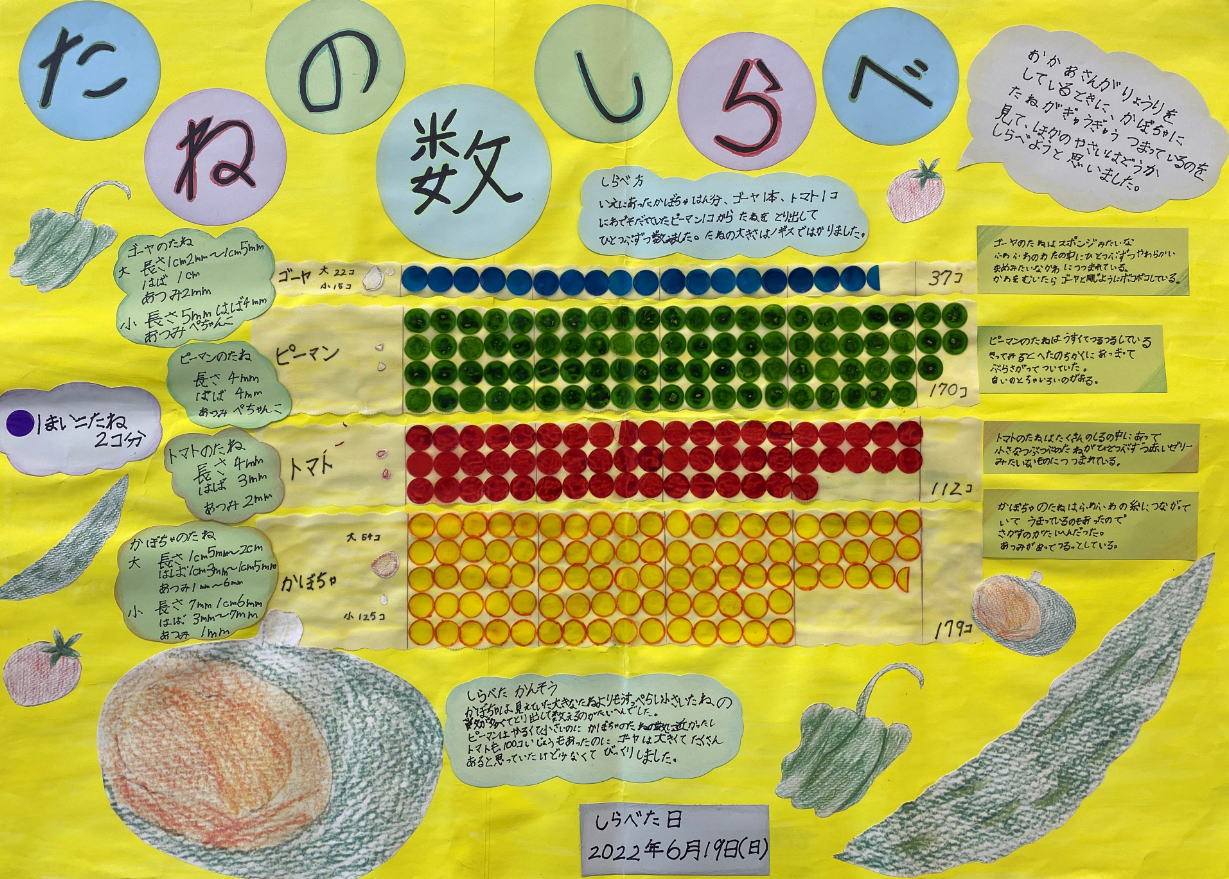 たねの数しらべ
おかあさんがりょうりを
しているときに、かぼちゃに
たねがぎゅうぎゅうつまっているのを
見て、ほかのやさいはどうか
しらべようと思いました。
しらべ方
いえにあったかぼちゃはん分、ゴーヤ1本、トマト1コ
にわでそだてていたピーマン1コから たねを とり出して
ひとつぶずつ数えました。たねの大きさはノギスではかりました。
ゴーヤのたね
大 長さ1cm2mm〜1cm5mm
はば 1cm
あつみ2mm
小 長さ5mm はば4mm
あつみ ぺちゃんこ
ゴーヤ 大 22コ
小 15コ
37コ
ゴーヤのたねはスポンジみたいな
ふわふわのわたの中にひとつぶずつやわらかい
まめみたいなかわにつつまれている。
かわをむいたらゴーヤと同じようにボコボコしている。
ピーマンのたね
長さ 4mm
はば 4mm
あつみ ぺちゃんこ
ピーマン
170コ
ピーマンのたねはうすくてつるつるしている
きってみるとへたのちかくにあつまって
ぶらさがってついていた。
白いのとちゃいろいのがある。
1まい=たね
2コ分
トマトのたね
長さ 4mm
はば 3mm
あつみ 2mm
トマト
112コ
トマトのたねはたくさんのしるの中にあって
小さなつぶつぶのたねがひとつぶずつ赤いゼリー
みたいなものにつつまれている。
かぼちゃのたね
大 長さ1cm5mm〜2cm
はば1cm3mm〜1cm5mm
あつみ1mm〜6mm
小 長さ7mm 1cm6mm
はば 3mm〜7mm
あつみ 1mm
かぼちゃ
大 54コ
小 125コ
179コ
かぼちゃのたねはふわふわの糸につながて
いて うまっているのもあったので
さがすのがたいへんだった。
あつみがあってつるっとしている。
しらべた かんそう
かぼちゃは、見えていた大きなたねよりもうすっぺらい小さいたねの
数が多くてとり出して数えるのがたいへんでした。
ピーマンはかるくて小さいのに かぼちゃのたねの数に近かったし
トマトも100コいじょうもあったのに、ゴーヤは大きくてたくさん
あると思っていたけど少なくてびっくりしました。
しらべた日
2022年6月19日(日)